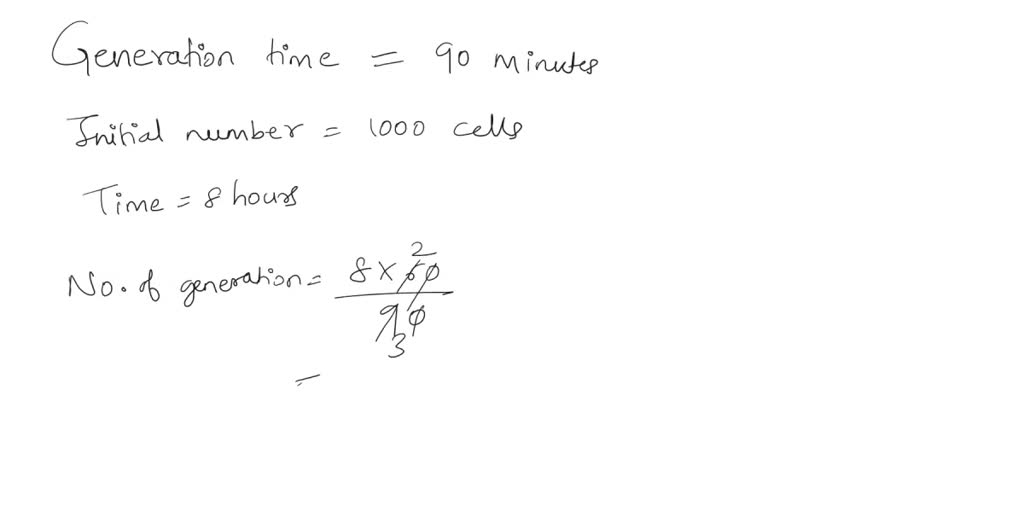 Generation time = 90 minutes
Initial number = 1000 cells
Time = 8 hours
2
No. of generation = 8 × 60
90
3
=